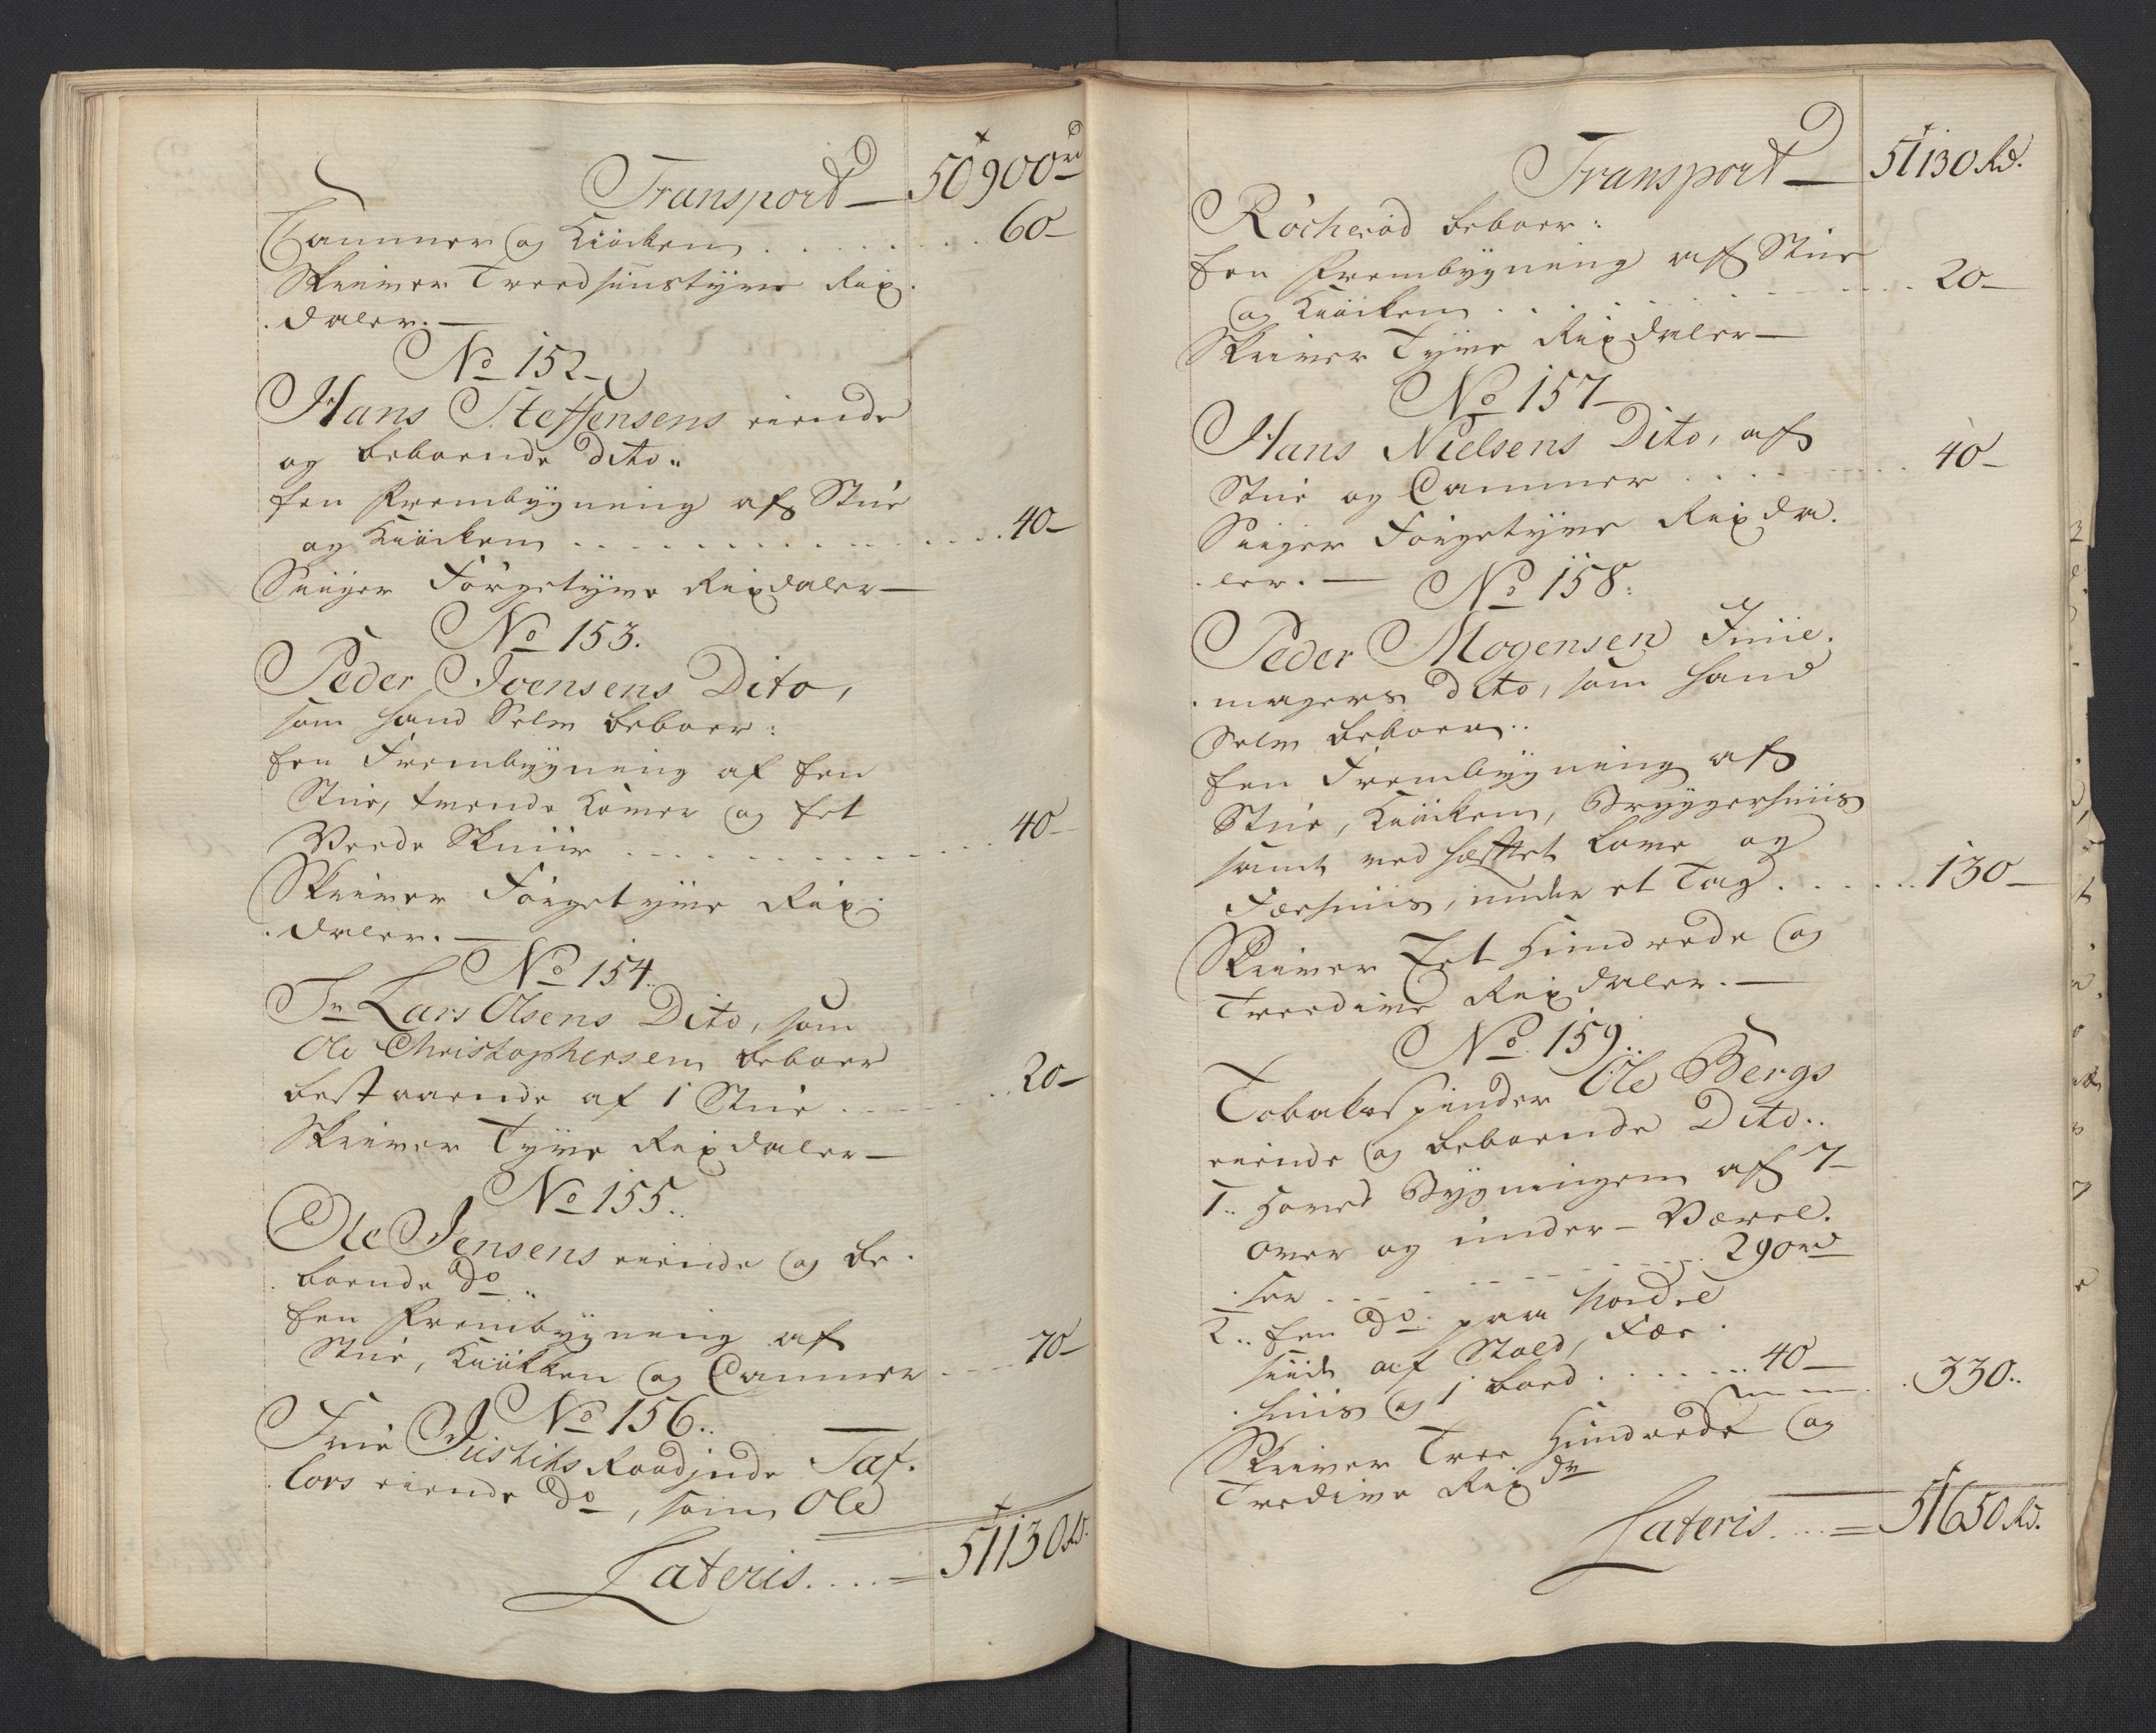 Transport — 50900rd
Cammer og Kiöcken . . . . . . . 60 —
Skriver Tredsinstyve Rix-
daler. —
No 152 —
Hans Steffensens eiende
og beboende dito ..
Een Frembygning af Stue
og Kiöcken . . . . . . . . . . . . . 40 —
Siiger Förgetyve Rixdaler —
No 153.
Peder Ivensens Dito,
som hand Selv beboer:
Een Frembygning af Een
Stue, tvende Kamer og Eet
Veede Skuur . . . . . . . . . . . . 40 —
Skriver Förgetyve Rix-
daler. —
No 154.
Sr Lars Olsens Dito, som
Ole Christophersen beboer
bestaaende af 1 Stue . . . . . . . 20 —
Skriver Tyve Rixdaler —
No 155.
Ole Jensens eiende og be-
boende do ..
Een Frembygning af
Stue, Kiökken og Cammer . . . . 70 —
No 156 ..
Frue Justits Raadinde Taf-
lovs eiende do , som Ole
Lateris . . . . = 51130 Rd.
Transport — 51130 Rd.
Röcheröd beboer:
Een Frembygning af Stue
og Kiöcken . . . . . . . . . . . . 20 —
Skriver Tyve Rixdaler —
No 157 —
Hans Nielsens Dito, af
Stue og Cammer . . . . . . . . . 40 —
Siiger Förgetyve Rixda-
ler. — No 158:
Peder Mogensen
magers dito, som hand
Selv beboer ..
Een Frembygning af
Stue, Kiöcken, Bryggerhuus
samt ved hæfftet Lave og
Fæehuus, under et Tag . . . . . . 130 —
Skriver Eet Hundrede og
Tredive Rixdaler. —
No 159 ..
Tobakspinder Ole Bergs
eiende og beboende Dito ..
1 .. Hoved Bygningen af 7 —
over og under - Værel-
ser . . . . . . . . . . . . 290rd
2 .. Een do paa Nordre
siide af Stald, Fæe-
huus og 1 boed . . . . . . . 40 —
330 ..
Skriver Tree Hundrede og
Tredive Rixdr
Lateris . . . . = 51650 Rd.